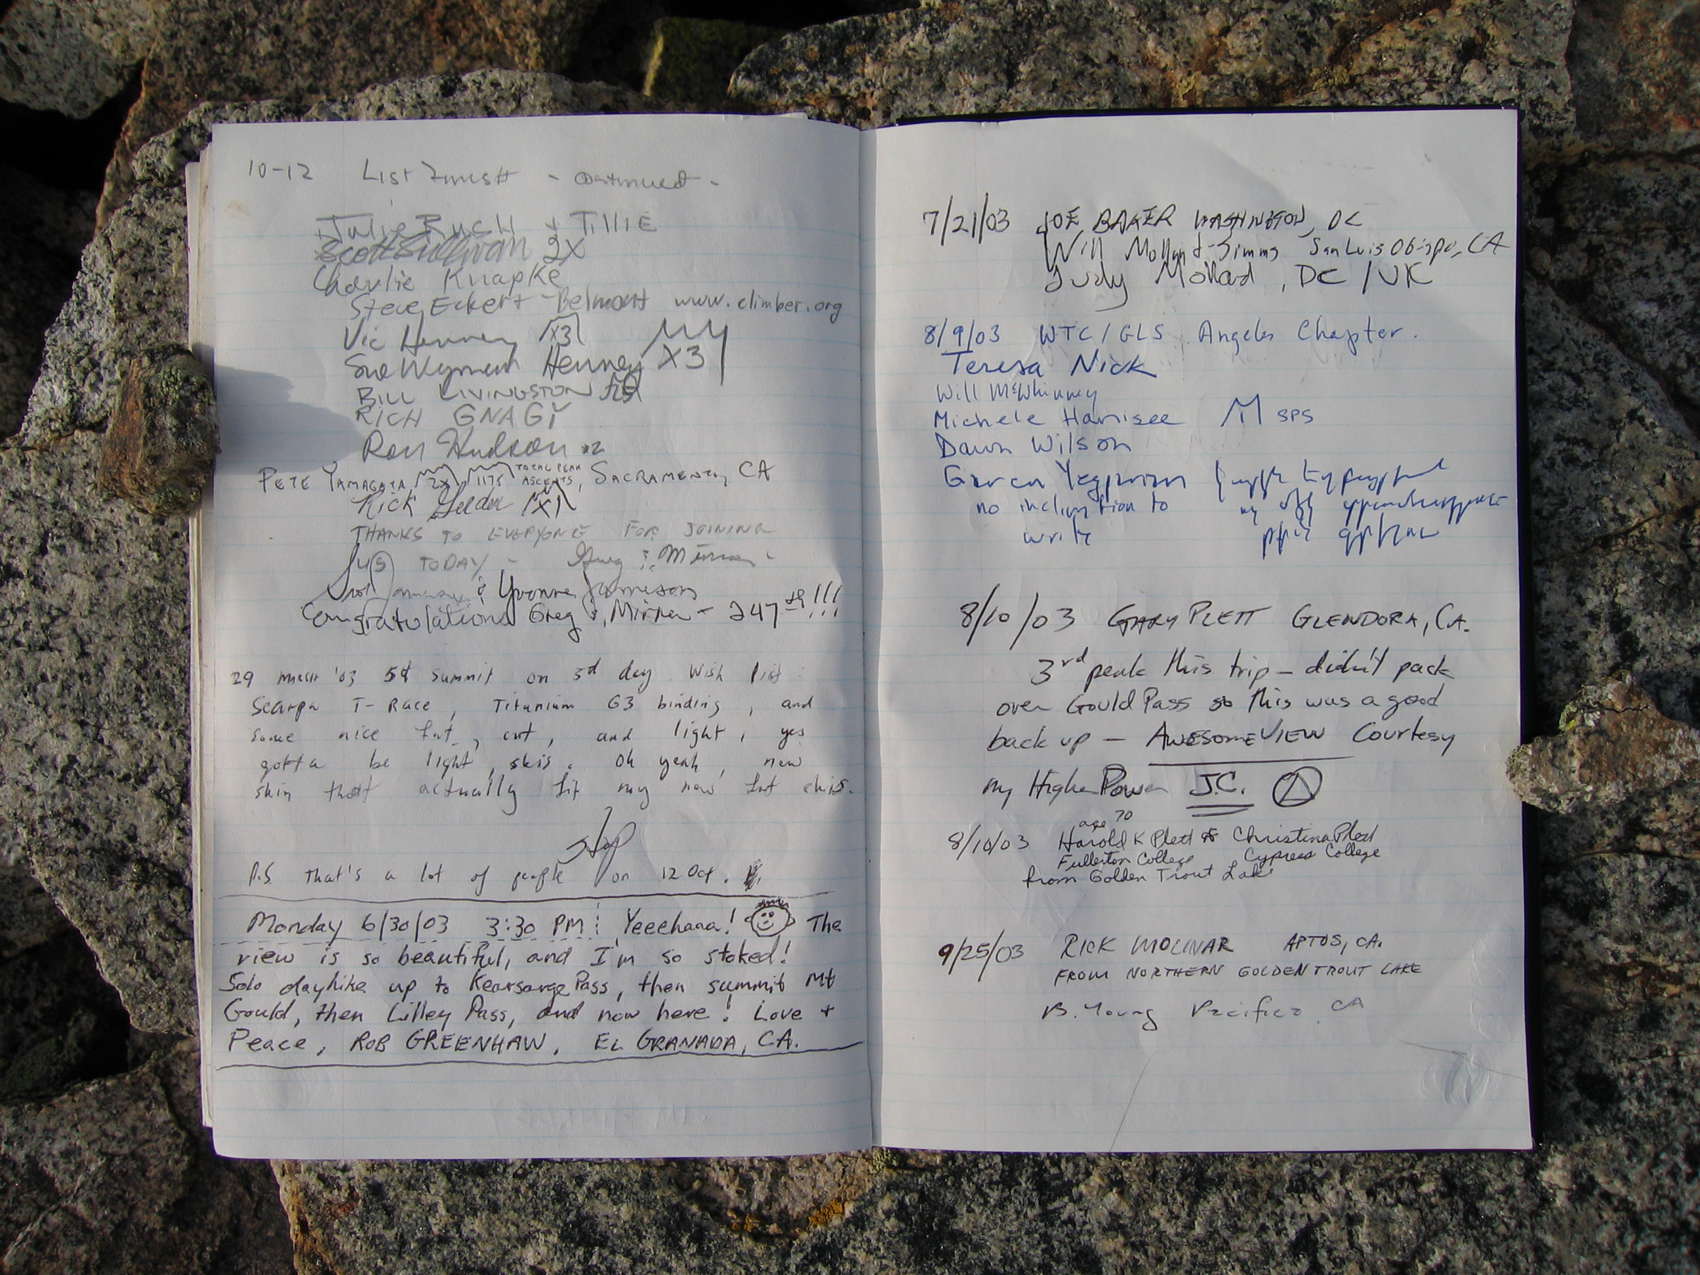 10-12 List Finish - continued -
Julie Rush + Tillie
Scott Sullivan 2X
Charlie Knapke
Steve Eckert - Belmont www.climber.org
Vic Henney X3
Sue Wyman Henney X3
BILL LIVINGSTON
RICH GNAGY
Ron Hudson x2
PETE YAMAGATA 2X 1175 TOTAL PEAK ASCENTS, SACRAMENTO, CA
Rick X1
THANKS TO EVERYONE FOR JOINING
US TODAY - Greg & Mirna
& Yvonne Jamison
Congratulations Greg & Mirna - 247th!!!
29 MARCH '03 5th summit on 3d day. Wish list:
Scarpa T-Race, Titanium G3 binding, and
some nice fat, cut, and light, yes
gotta be light, skis. Oh yeah, new
skin that actually fit my new fat skis.
P.S. That's a lot of people on 12 Oct.
Monday 6/30/03 3:30 PM: Yeeehaaa! The
view is so beautiful, and I'm so stoked!
Solo dayhike up to Kearsarge Pass, then summit Mt
Gould, then Lilley Pass, and now here! Love +
Peace, ROB GREENHAW, EL GRANADA, CA.
7/21/03 JOE BAKER WASHINGTON, DC
Will Mollard-Simms San Luis Obispo, CA
Judy Mollard, DC / UK
8/9/03 WTC/GLS Angeles Chapter.
Teresa Nick
Will McWhinney
Michele Harrisee M SPS
Dawn Wilson
Garen Yegparian
no inclination to
write
8/10/03 GARY PLETT GLENDORA, CA.
3rd peak this trip - didn't pack
over Gould Pass so this was a good
back up - AWESOME VIEW Courtesy
my Higher Power J.C.
age 70
8/10/03 Harold K Plett & Christina Plett
Fullerton College Cypress College
from Golden Trout Lake
9/25/03 RICK MOLINAR APTOS, CA.
FROM NORTHERN GOLDEN TROUT LAKE
B. Young Pacifica, CA